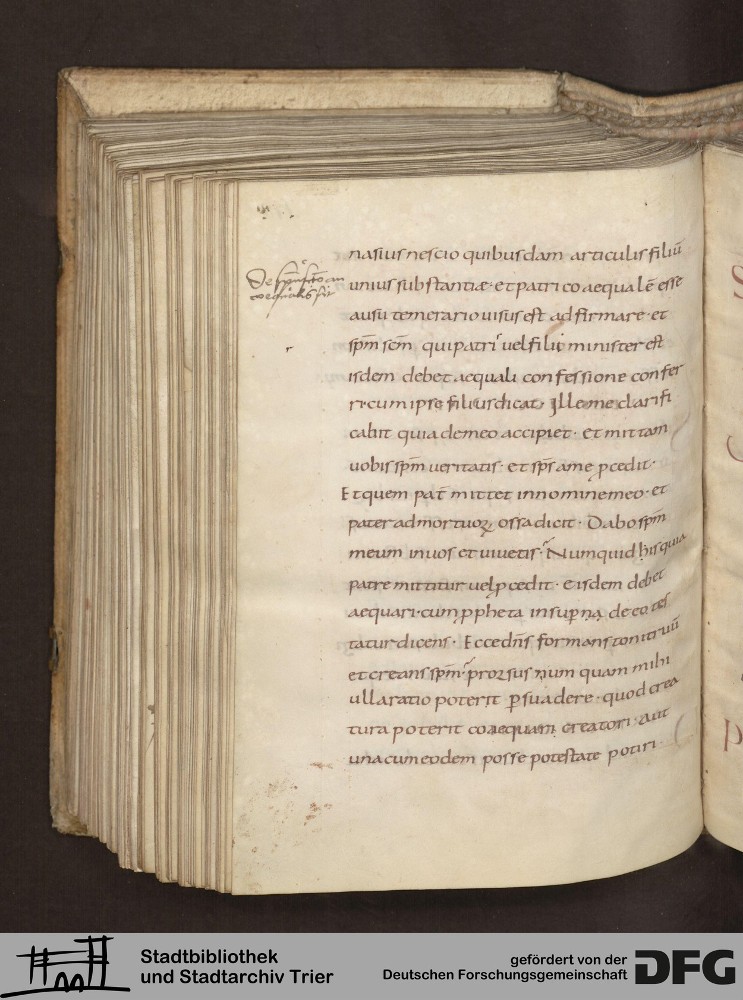 nasius nescio quibusdam articulis filiū
De sp̄u sc̄to an
coequalis sit
unius substantiæ· et patri coaequalē esse
ausu temerario uisus est adfirmare· et
sp̄m sc̄m qui patri uel filii minister est
isdem debet aequali confessione confer
ri· cum ipse filius dicat· Ille me clarifi
cabit quia de meo accipiet· et mittam
uobis sp̄m ueritatis· et sp̄s a me ꝓcedit·
Et quem pat̄ mittet in nomine meo· et
pater ad mortuoꝝ ossa dicit· Dabo sp̄m
meum in uos et uiuetis· Numquid his quia
patre mittitur uel ꝓcedit· eisdem debet
aequari· cum ꝓpheta in suꝑna de eo tes
tatur dicens· Ecce dn̄s formans tonitruū
et creans sp̄m· prorsus num quam mihi
ulla ratio poterit ꝑsuadere· quod crea
tura poterit coaequari creatori· aut
una cum eodem posse potestate potiri·
Stadtbibliothek
und Stadtarchiv Trier
gefördert von der
Deutschen Forschungsgemeinschaft
DFG